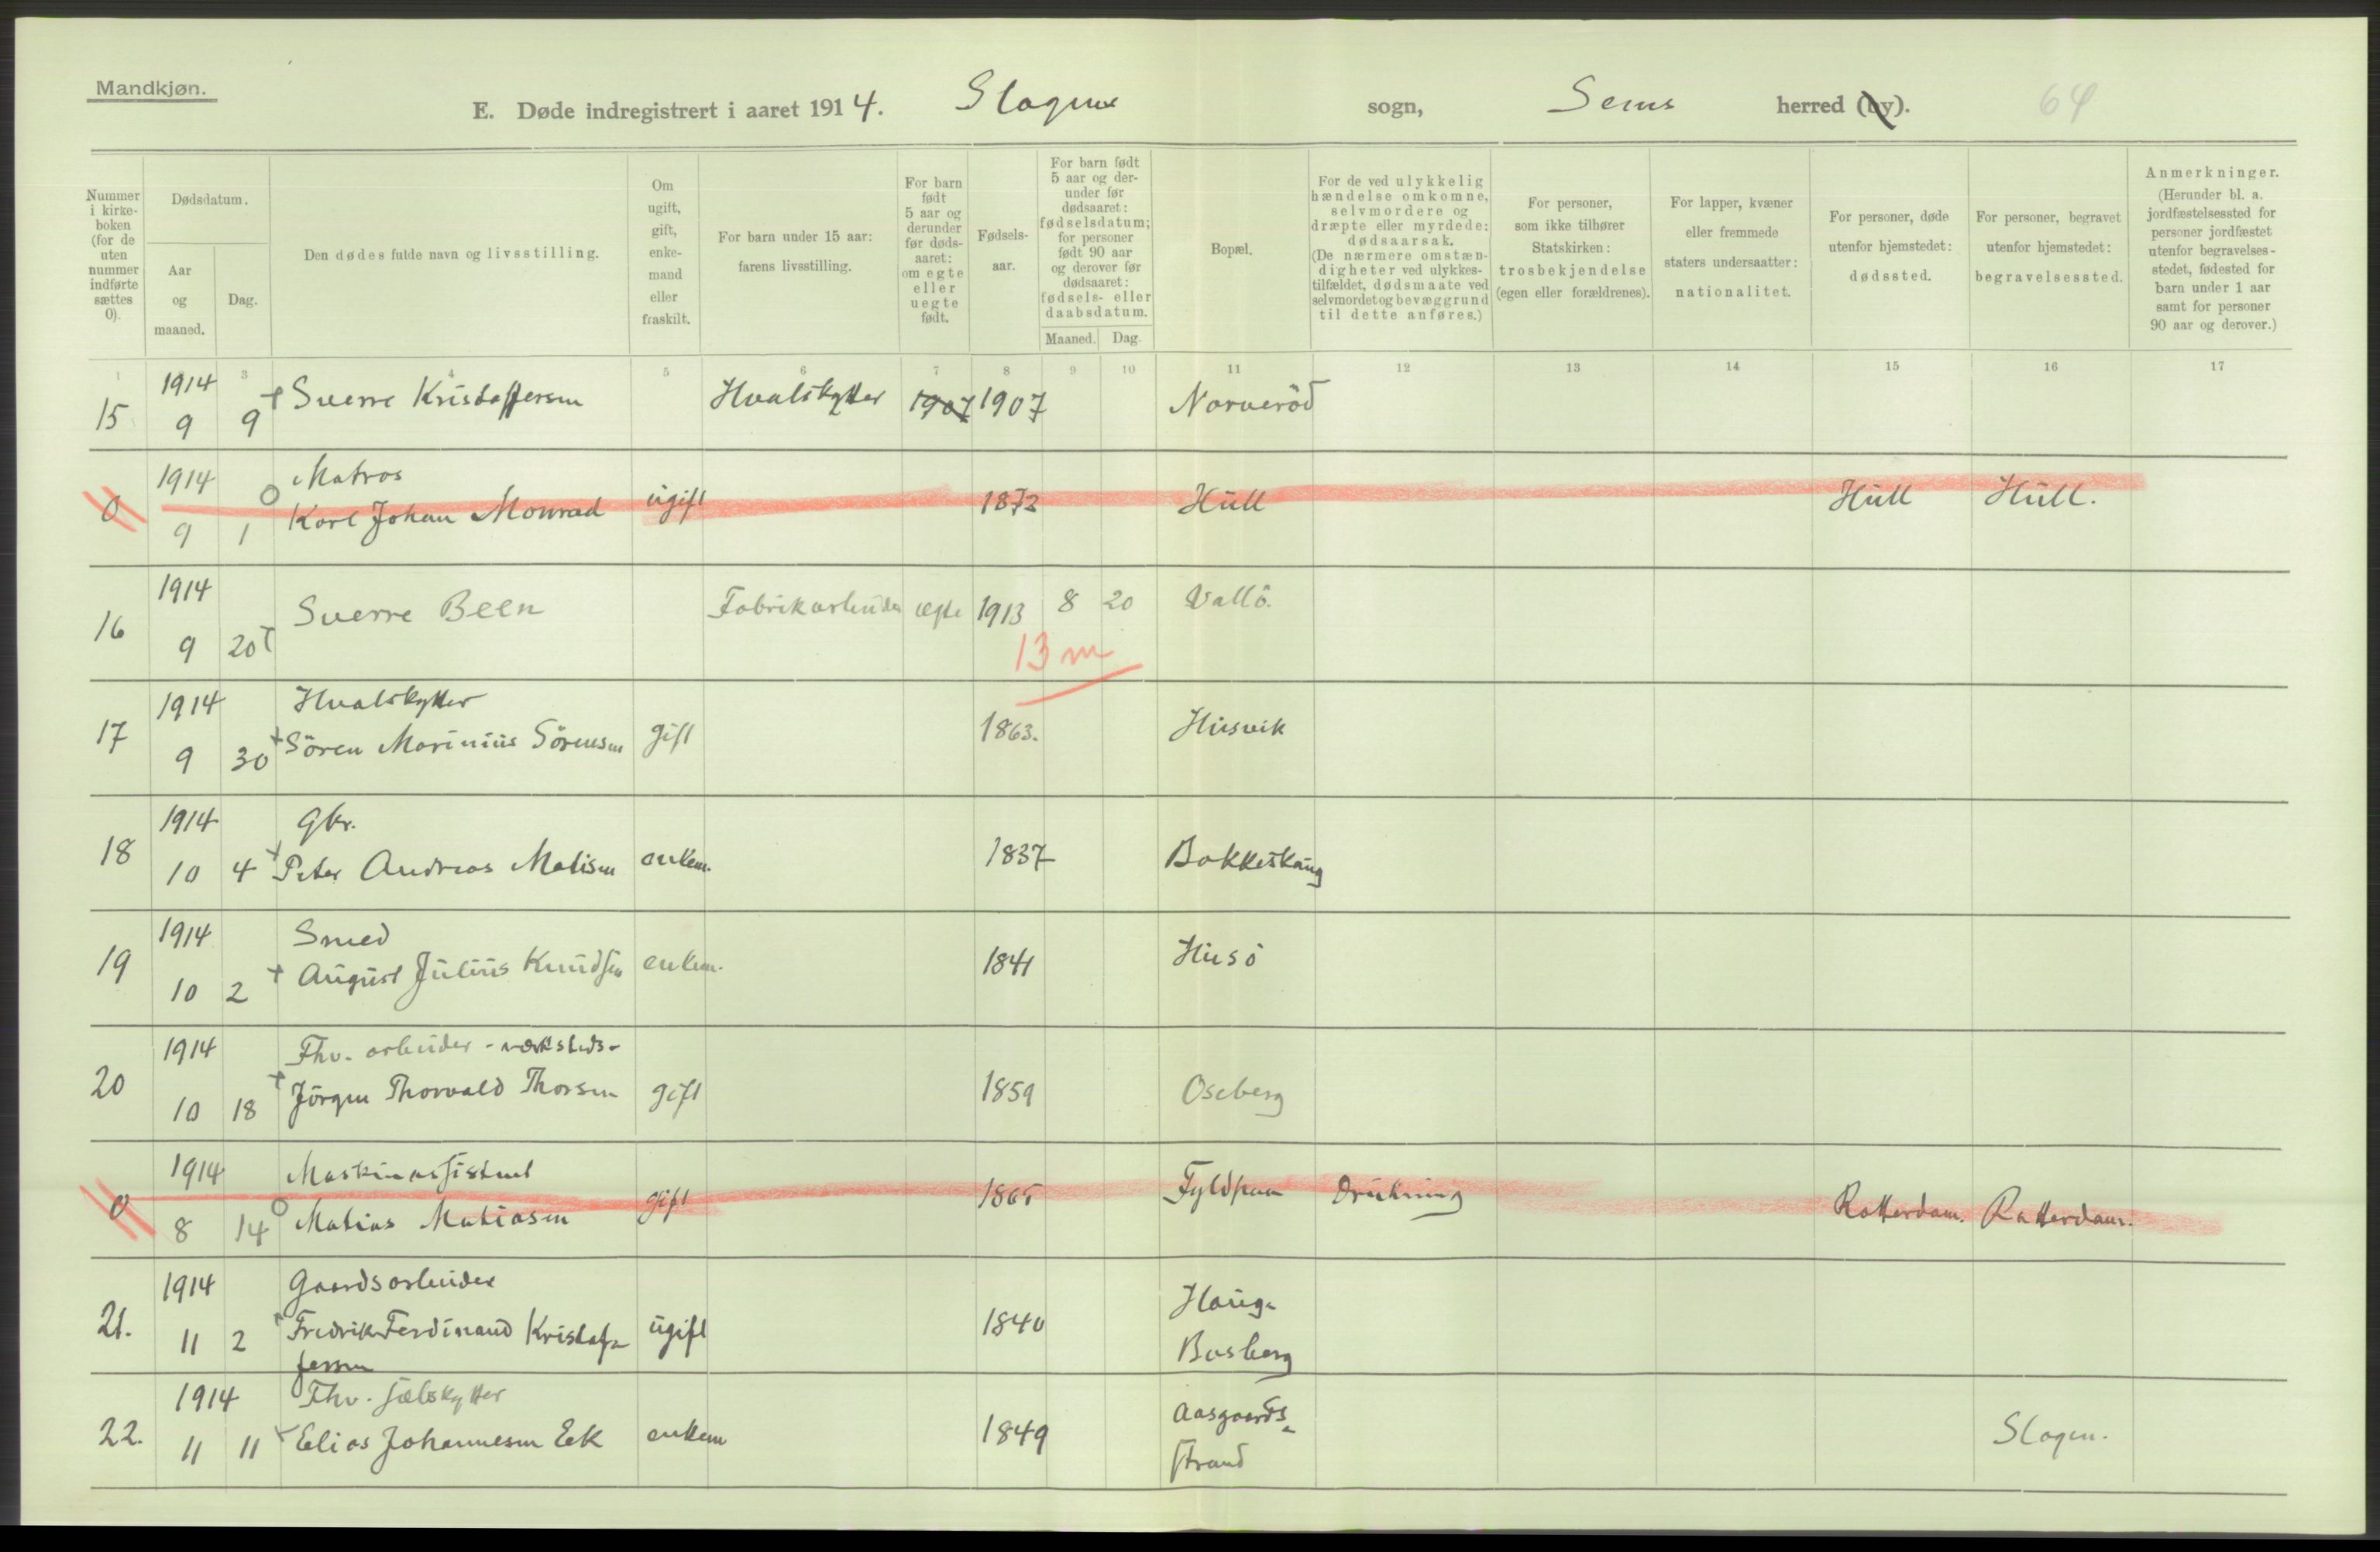 Mandkjøn.
E. Døde indregistrert i aaret 1914. Slagens sogn, Sems herred (by). 64
Nummer i kirke-boken (for de uten nummer indførte sættes 0).
Dødsdatum.
Aar og maaned.
Dag.
Den dødes fulde navn og livsstilling.
Om ugift, gift, enke-mand eller fraskilt.
For barn under 15 aar: farens livsstilling.
For barn født 5 aar og derunder før døds-aaret: om egte eller uegte født.
Fødsels-aar.
For barn født 5 aar og der-under før dødsaaret: fødselsdatum; for personer født 90 aar og derover før dødsaaret: fødsels- eller daabsdatum.
Maaned. Dag.
Bopæl.
For de ved ulykkelig hændelse omkomne, selvmordere og dræpte eller myrdede: dødsaarsak. (De nærmere omstæn-digheter ved ulykkes-tilfældet, dødsmaate ved selvmordet og bevæggrund til dette anføres.)
For personer, som ikke tilhører Statskirken: trosbekjendelse (egen eller forældrenes).
For lapper, kvæner eller fremmede staters undersaatter: nationalitet.
For personer, døde utenfor hjemstedet: dødssted.
For personer, begravet utenfor hjemstedet: begravelsessted.
Anmerkninger. (Herunder bl. a. jordfæstelsessted for personer jordfæstet utenfor begravelses-stedet, fødested for barn under 1 aar samt for personer 90 aar og derover.)
1 3 4 5 6 7 8 9 10 11 12 13 14 15 16 17
15 1914 9 9 + Sverre Kristoffersen Hvalskytter 1907 1907 Norverød
0 1914 9 1 O Matros
Karl Johan Monrad ugift 1872 Hull Hull Hull.
16 1914 9 20 + Sverre Been Fabrikarbeider egte 1913 8 20 Vallö.
13 m
17 1914 9 30 + Hvalskytter
Sören Marinius Sörensen gift 1863. Husvik
18 1914 10 4 + Gbr.
Peter Andreas Matisen enkem. 1837 Bakkeskaug
19 1914 10 2 + Smed
August Julius Knudsen enkem. 1841 Husö
20 1914 10 18 + Fhv. arbeider - værksteds-
Jörgen Thorvald Thorsen gift 1859 Oseberg
0 1914 8 14 O Maskinassistent
Matias Matiasen gift 1865 Fyldpaa Drukning Rotterdam. Rotterdam.
21. 1914 11 2 + Gaardsarbeider
Fredrik Ferdinand Kristof-
fersen ugift 1840 Haug-
Basberg
22. 1914 11 11 + Fhv. sælskytter
Elias Johannesen Eek enkem 1849 Aasgaards-
strand Slagen.